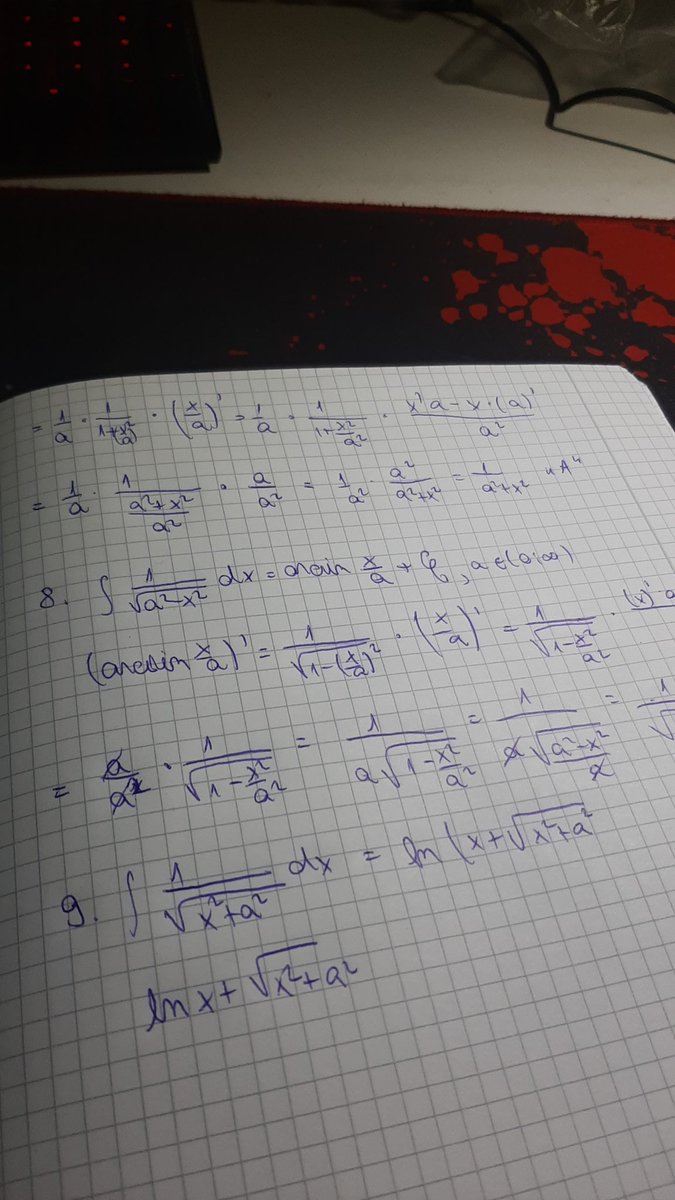 = 1/a · 1/(1+(x/a)²) · (x/a)' = 1/a · 1/(1+x²/a²) · (x'a - x·(a)')/a²
= 1/a · 1/((a²+x²)/a²) · a/a² = 1/a² · a²/(a²+x²) = 1/(a²+x²)
8. ∫ 1/√(a²-x²) dx = arcsin x/a + C, a ∈ (0;∞)
(arcsin x/a)' = 1/√(1-(x/a)²) · (x/a)' = 1/√(1-x²/a²) · (x)'·a
= a/a² · 1/√(1-x²/a²) = 1/(a√(1-x²/a²)) = 1/(a√(a²-x²)/a) = 1/√
9. ∫ 1/√(x²+a²) dx = ln (x+√(x²+a²)
ln x+√x²+a²